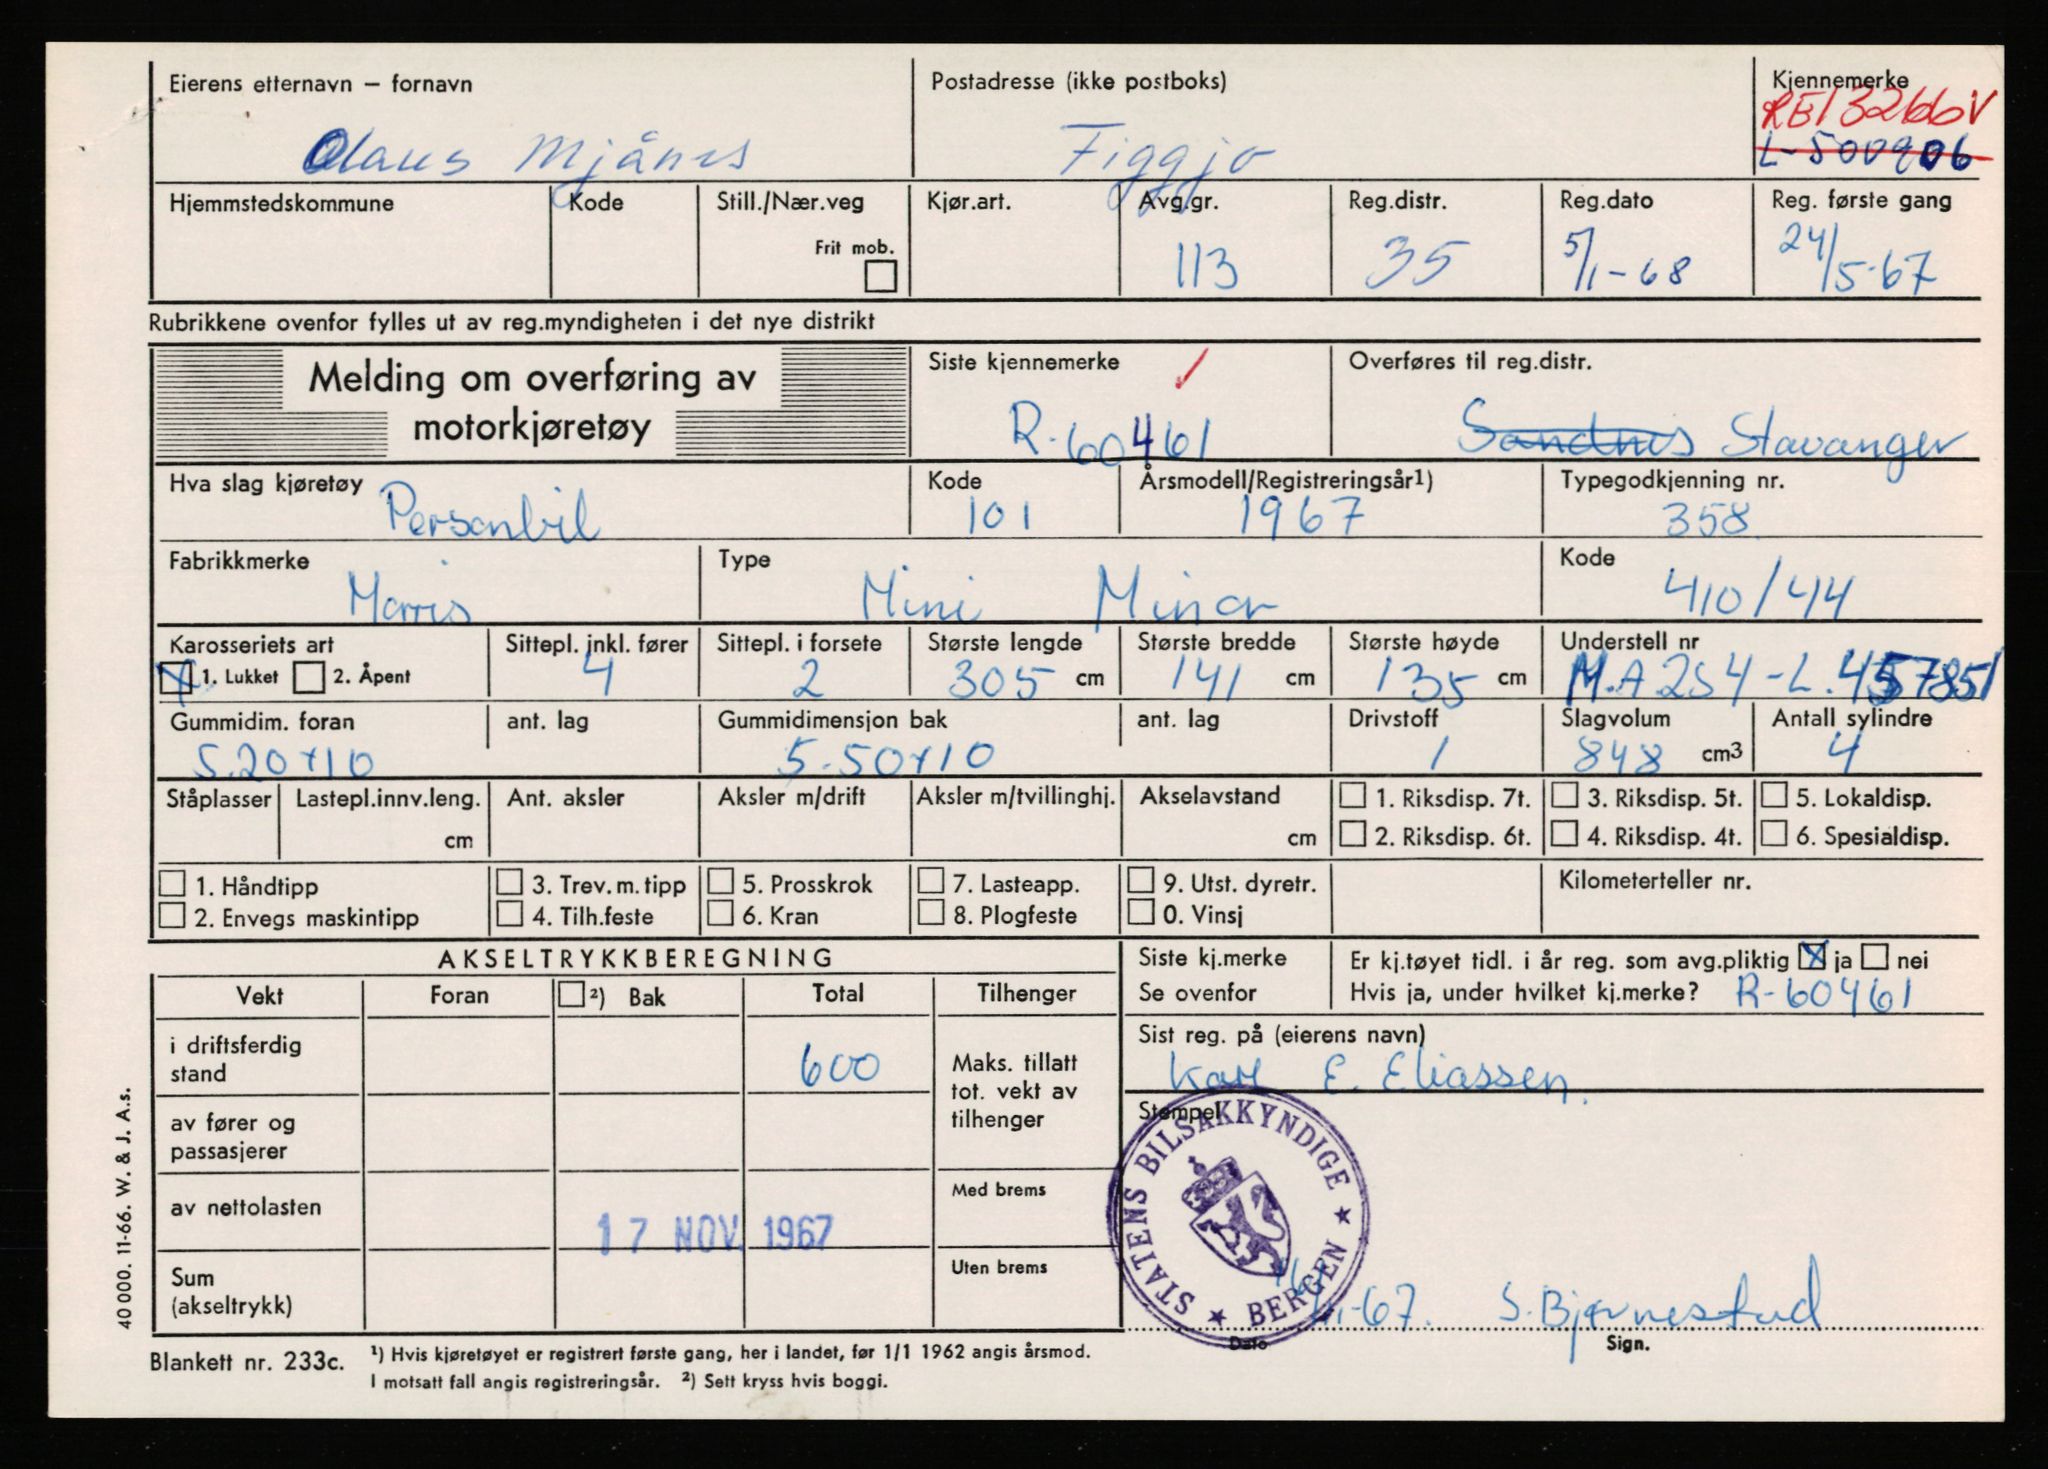 Eierens etternavn – fornavn
Olaus Mjånes
Postadresse (ikke postboks)
Figgjo
Kjennemerke
L-500906
Hjemmstedskommune
Kode
Still./Nær.veg
Frit mob.
Kjør.art.
Avg.gr.
113
Reg.distr.
35
Reg.dato
5/1-68
Reg. første gang
24/5-67
Rubrikkene ovenfor fylles ut av reg.myndigheten i det nye distrikt
Melding om overføring av
motorkjøretøy
Siste kjennemerke
R-60461
Overføres til reg.distr.
Sandnes Stavanger
Hva slag kjøretøy
Personbil
Kode
101
Årsmodell/Registreringsår1)
1967
Typegodkjenning nr.
358
Fabrikkmerke
Morris
Type
Mini Minor
Kode
410/44
Karosseriets art
1. Lukket 2. Åpent
Sittepl. inkl. fører
4
Sittepl. i forsete
2
Største lengde
305 cm
Største bredde
141 cm
Største høyde
135 cm
Understell nr
M.A2S4-L.457851
Gummidim. foran
5.20x10
ant. lag
Gummidimensjon bak
5.50x10
ant. lag
Drivstoff
1
Slagvolum
848 cm3
Antall sylindre
4
Ståplasser
Lastepl.innv.leng.
cm
Ant. aksler
Aksler m/drift
Aksler m/tvillinghj.
Akselavstand
cm
1. Riksdisp. 7t.
2. Riksdisp. 6t.
3. Riksdisp. 5t.
4. Riksdisp. 4t.
5. Lokaldisp.
6. Spesialdisp.
1. Håndtipp
2. Envegs maskintipp
3. Trev. m. tipp
4. Tilh.feste
5. Prosskrok
6. Kran
7. Lasteapp.
8. Plogfeste
9. Utst. dyretr.
0. Vinsj
Kilometerteller nr.
AKSELTRYKKBEREGNING
Vekt
Foran
2) Bak
Total
Tilhenger
i driftsferdig
stand
600
Maks. tillatt
tot. vekt av
tilhenger
av fører og
passasjerer
av nettolasten
Med brems
17 NOV. 1967
Sum
(akseltrykk)
Uten brems
Siste kj.merke
Se ovenfor
Er kj.tøyet tidl. i år reg. som avg.pliktig ja nei
Hvis ja, under hvilket kj.merke? R-60461
Sist reg. på (eierens navn)
Kare E. Eliassen
Stempel
STATENS BILSAKKYNDIGE
BERGEN
-67. S. Bjørnestad
Dato
Sign.
Blankett nr. 233c.
1) Hvis kjøretøyet er registrert første gang, her i landet, før 1/1 1962 angis årsmod.
I motsatt fall angis registreringsår. 2) Sett kryss hvis boggi.
40 000. 11-66. W. & J. A.s.